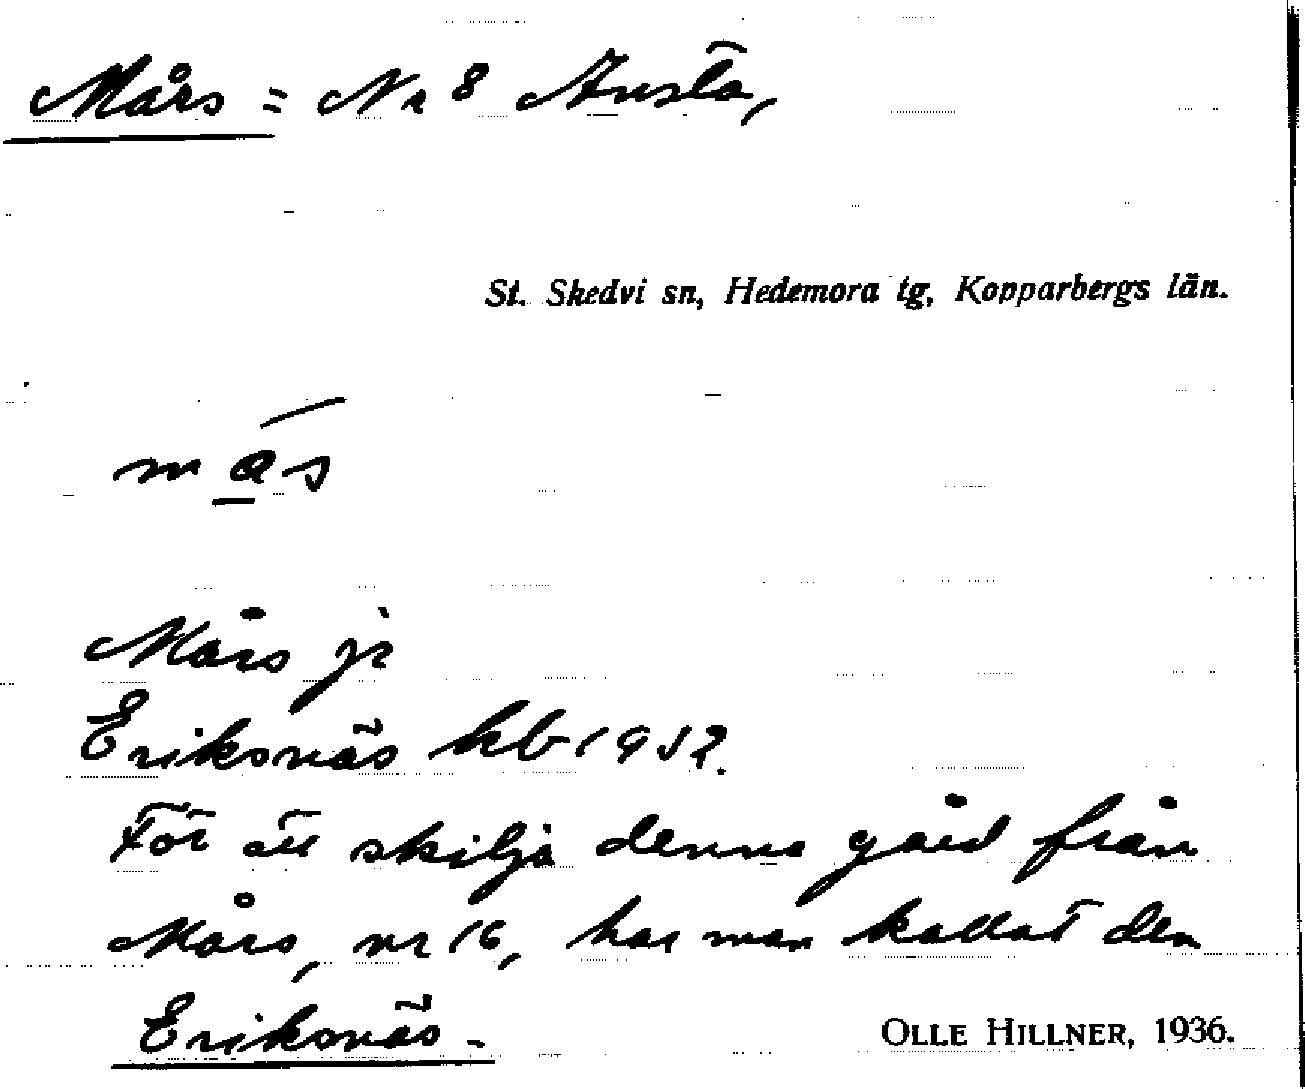 Mårs = Nr 8 Ansta,
St. Skedvi sn, Hedemora tg, Kopparbergs län.
mas
Mårs jr
Eriksnäs kb 1932.
För att skilja denna gård från
Mårs, nr 16, har man kallat den
Eriksnäs.
OLLE HILLNER, 1936.